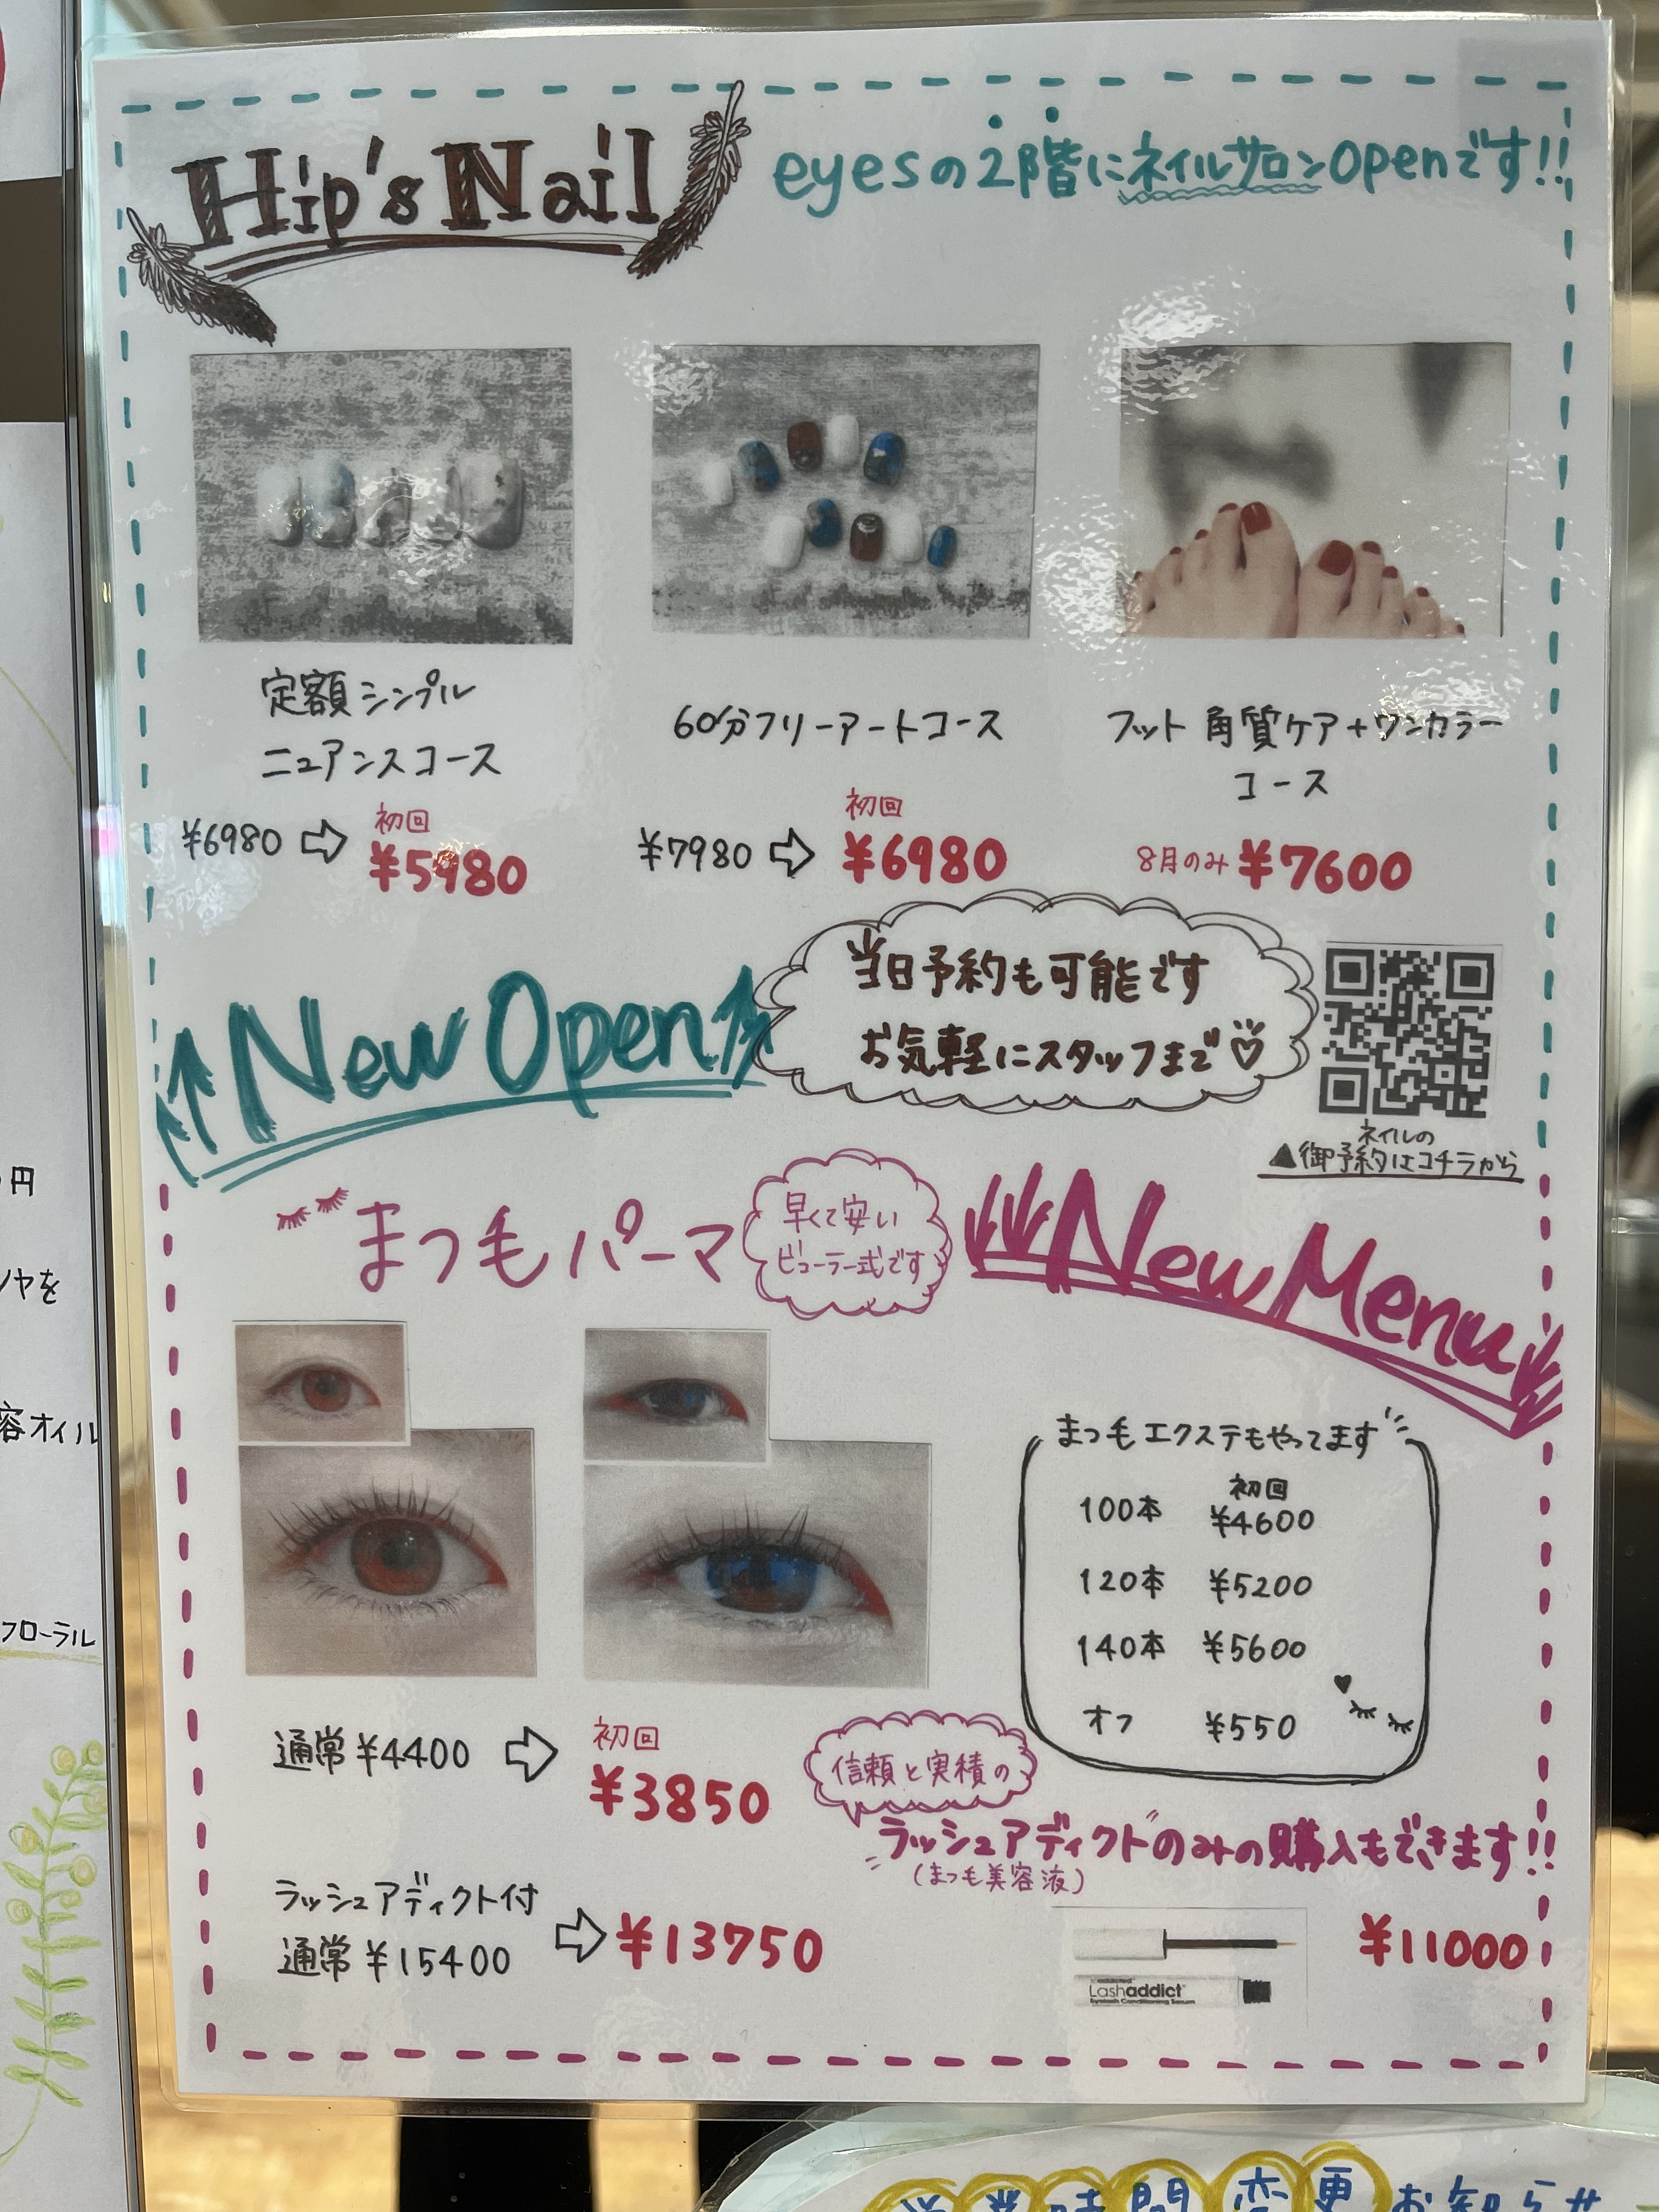 Hip's Nail
eyesの2階にネイルサロンOpenです!!
定額シンプル
ニュアンスコース
¥6980 ⇨ 初回 ¥5980
60分フリーアートコース
¥7980 ⇨ 初回 ¥6980
フット 角質ケア+ワンカラー
コース
8月のみ ¥7600
New Open
当日予約も可能です
お気軽にスタッフまで♡
ネイルの
▲御予約はコチラから
まつ毛パーマ
早くて安い
ビューラー式です
New Menu
まつ毛エクステもやってます
初回
100本 ¥4600
120本 ¥5200
140本 ¥5600
オフ ¥550
通常¥4400 ⇨ 初回 ¥3850
ラッシュアディクト付
通常¥15400 ⇨ ¥13750
信頼と実績の
"ラッシュアディクト"のみの購入もできます!!
(まつ毛美容液)
Lashaddict
Eyelash Conditioning Serum
¥11000
円
ヤを
容オイル
フローラル
営業時間変更お知らせ